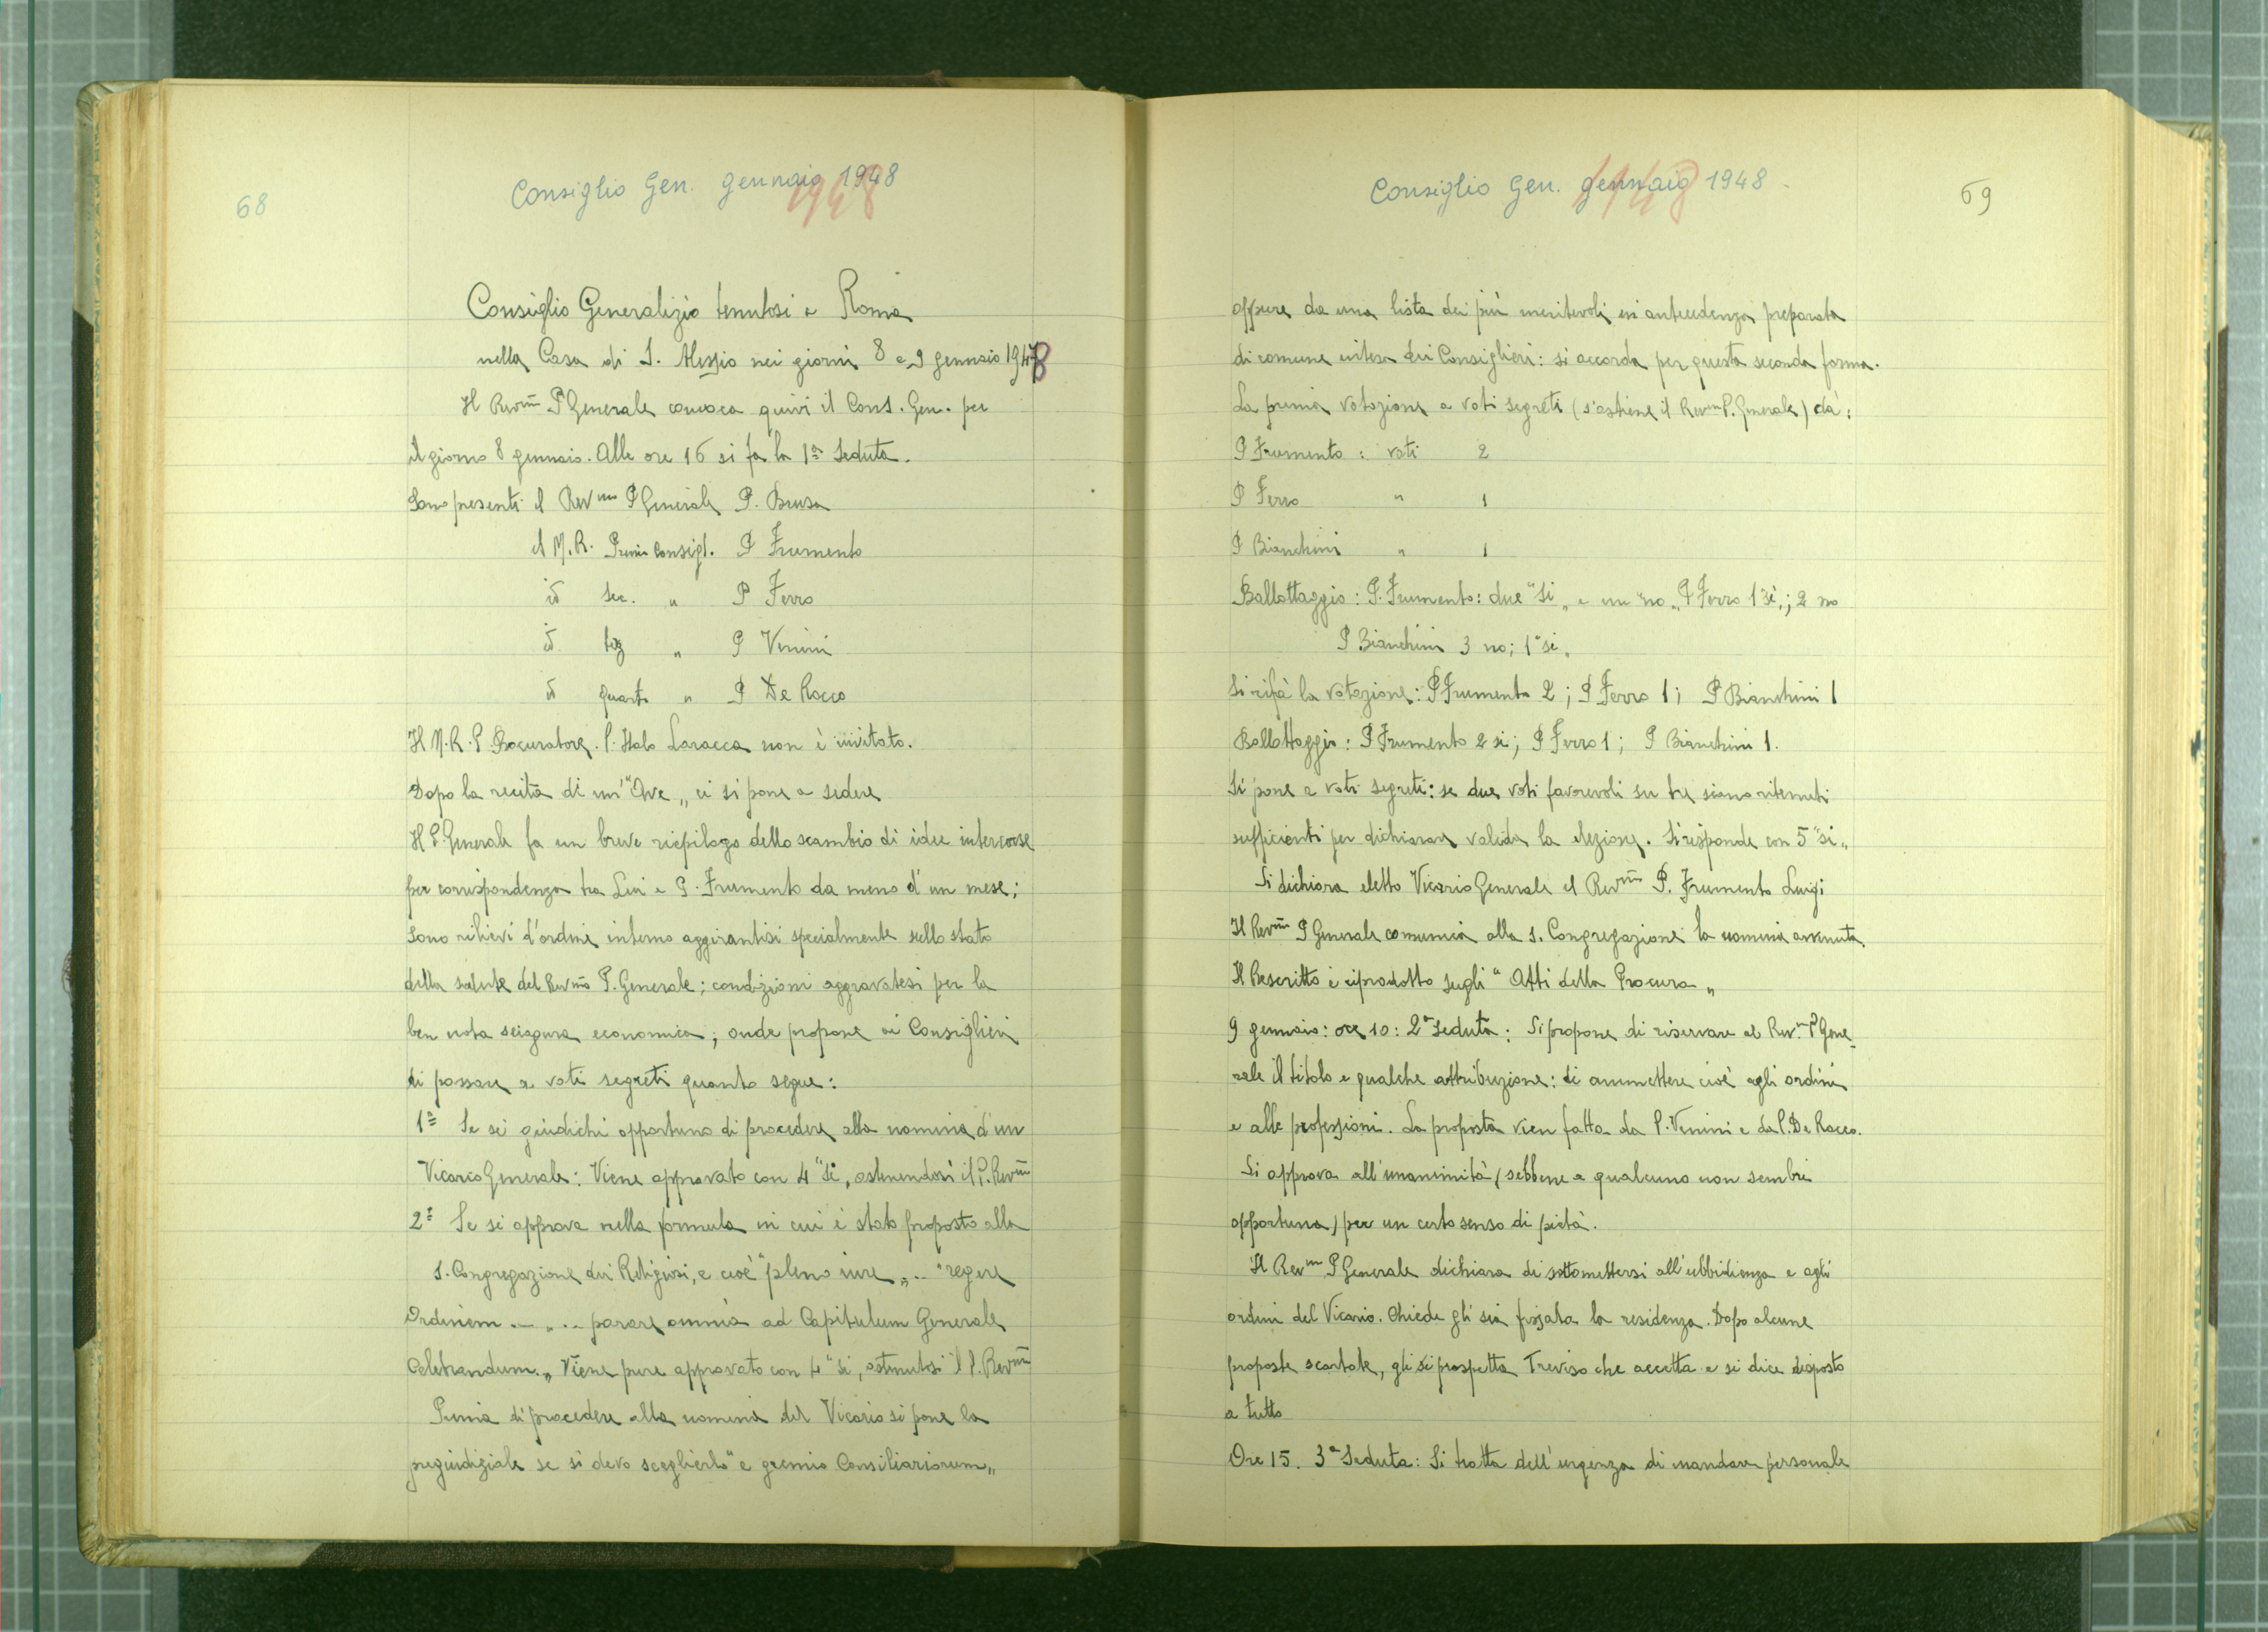 68
Consiglio Gen. gennaio 1948
1948
Consiglio Generalizio tenutosi a Roma
nella Casa di S. Alessio nei giorni 8 e 9 gennaio 1948
Il Revm̃o P Generale convoca quivi il Cons. Gen. per
il giorno 8 gennaio. Alle ore 16 si fa la 1ª Seduta.
Sono presenti il Revmo P Generale P. Brusa
il M.R. Primo Consigl. P Frumento
id sec. " P Ferro
id terz " P Venini
id quarto " P De Rocco
Il M.R.P. Procuratore P. Italo Laracca non è invitato.
Dopo la recita di un' "Ave„ ci si pone a sedere
Il P. Generale fa un breve riepilogo dello scambio di idee intercorse
per corrispondenza tra Lui e P. Frumento da meno d'un mese;
sono rilievi d'ordine interno aggirantisi specialmente sullo stato
della salute del Revmo P. Generale; condizioni aggravatesi per la
ben nota sciagura economica; onde propone ai Consiglieri
di passare a voti segreti quanto segue:
1º Se si giudichi opportuno di procedere alla nomina d'un
Vicario Generale: Viene approvato con 4 "si„ astenendosi il P. Revmo
2º Se si approva nella formula in cui è stato proposto alla
S. Congregazione dei Religiosi, e cioè "pleno iure„ .. "regere
Ordinem ... „ .. parare omnia ad Capitulum Generale
Celebrandum.„ Viene pure approvato con 4 "si, astenutosi il P. Revmo
Prima di procedere alla nomina del Vicario si pone la
pregiudiziale se si deva sceglierlo "e gremio Consiliariorum„
Consiglio Gen. gennaio 1948.
1948
69
oppure da una lista dei più meritevoli in antecedenza preparata
di comune intesa dei Consiglieri: si accorda per questa seconda forma.
La prima votazione a voti segreti (s'astiene il Revm P. Generale) dà:
P Frumento: voti 2
P Ferro " 1
P Bianchini " 1
Ballottaggio: P. Frumento: due "si„ e un "no„ P Ferro 1 si,; 2 no
P Bianchini 3 no; 1 "si„
Si rifà la votazione: P Frumento 2; P Ferro 1; P Bianchini 1
Ballottaggio: P Frumento 2 si; P Ferro 1; P Bianchini 1.
Si pone a voti segreti: se due voti favorevoli su tre siano ritenuti
sufficienti per dichiarare valida la elezione. Si risponde con 5 "si„
Si dichiara eletto Vicario Generale il Revmo P. Frumento Luigi
Il Revmo P Generale comunica alla S. Congregazione la nomina avvenuta.
Il Rescritto è riprodotto sugli "Atti della Procura„
9 gennaio: ore 10: 2ª Seduta: Si propone di riservare al Rev.m P Gene_
rale il titolo e qualche attribuzione: di ammettere cioè agli ordini
e alle professioni. La proposta vien fatta da P. Venini e da P. De Rocco.
Si approva all'unanimità (sebbene a qualcuno non sembri
opportuna) per un certo senso di pietà.
Il Revm P Generale dichiara di sottomettersi all'ubbidienza e agli
ordini del Vicario. Chiede gli sia fissata la residenza. Dopo alcune
proposte scartate, gli si prospetta Treviso che accetta e si dice disposto
a tutto
Ore 15. 3ª Seduta: Si tratta dell'urgenza di mandare personale